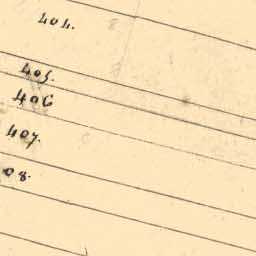 404.
405.
406
407.
08.